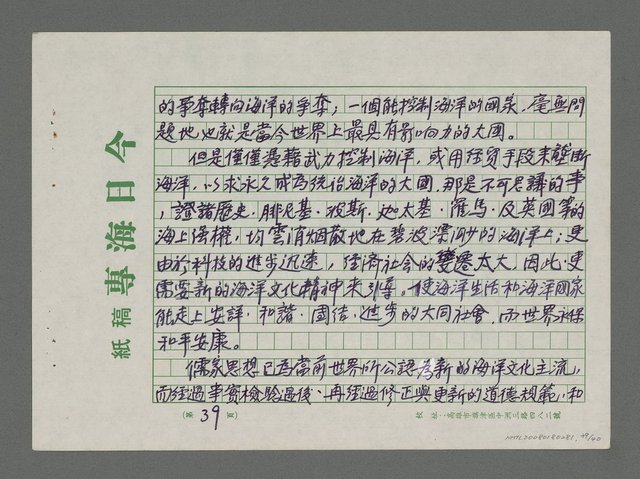 今日海專
稿紙
的爭奪轉向海洋的爭奪；一個能控制海洋的國家，毫無問
題地也就是當今世界上最具有影响力的大國。
但是僅僅憑藉武力控制海洋，或用經貿手段來壟斷
海洋，以求永久成為統治海洋的大國，那是不可思議的事
，證諸歷史，腓尼基．波斯．迦太基．羅馬．及英國等的
海上強權，均雲消烟散地在碧波深沙的海洋上；更
由於科技的進步迅速，經濟社會的變遷太大，因此．更
需要新的海洋文化精神來引導。使海洋生活和海洋國家
能走上安詳．和諧．團結．進步的大同社會，而世界永保
和平安康。
儒家思想已為當前世界所公認為新的海洋文化主流，
而經過事實檢驗過後、再經過修正與更新的道德規範，和
(第39頁)
校址．高雄市旗津區中洲三路四八二號
NMTL20080180281, 39/40